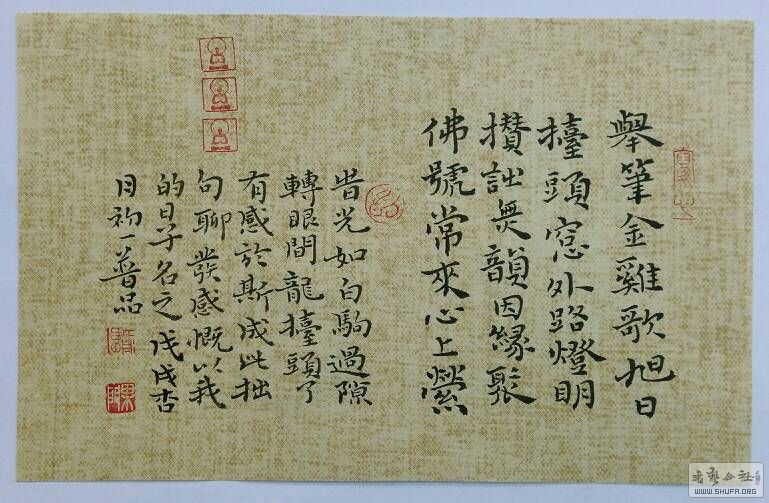 舉筆金雞歌旭日
擡頭窓外路燈明
攅詘無韻因緣聚
佛號常來心上縈
昔光如白駒過隙
轉眼間龍擡頭了
有感於斯成此拙
句聊發感慨以我
的日子名之戊戌杏
月初一普品
WWW.SHUFA.ORG